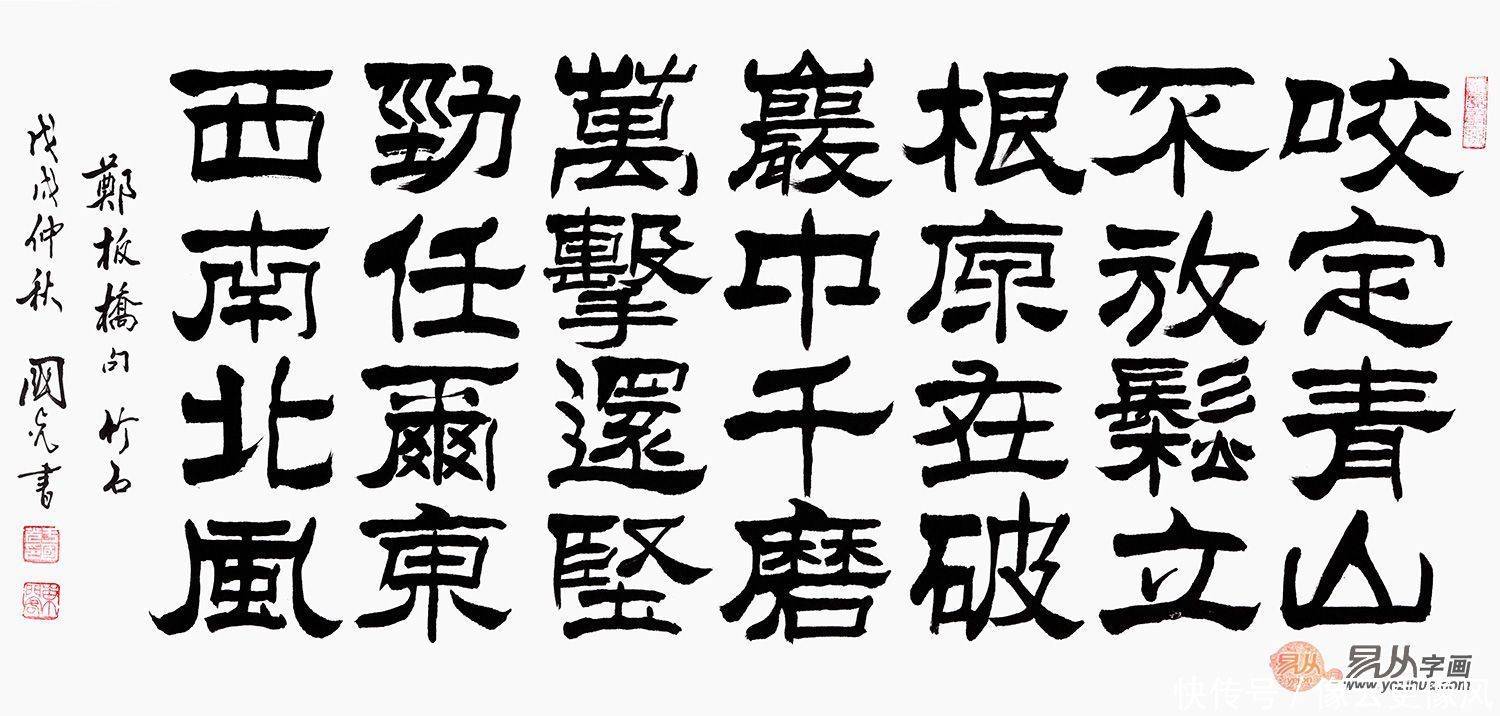 咬定青山
不放鬆立
根原在破
巖中千磨
萬擊還堅
勁任爾東
西南北風
鄭板橋句 竹石
戊戌仲秋 國 書
易从字画
www.yczihua.com
快传号 / 像云更像风